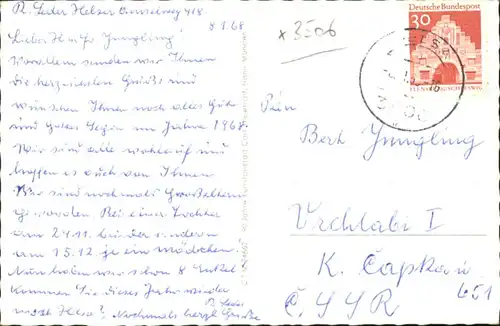 R. Leder Helsa
8.1.68
x 3506
Deutsche Bundespost
30
FLENSBURG/SCHLESWIG
Liebe
Vorallem senden wir Ihnen
die herzlichsten Grüße und
wünschen Ihnen noch alles Gute
und Gottes Segen im Jahre 1968.
Wir sind alle wohlauf und
hoffen es auch von Ihnen
Wir sind nochmals Großeltern
geworden. Bei einer Tochter
am 24.11. bei der andern
am 15.12. je ein Mädchen.
Nun haben wir schon 8 Enkel
Kommen Sie dieses Jahr wieder
nach Helsa? Nochmals herzl. Grüße
R. Leder
Jungling
Vrchlabí I
K. Čapka
ČSSR
651